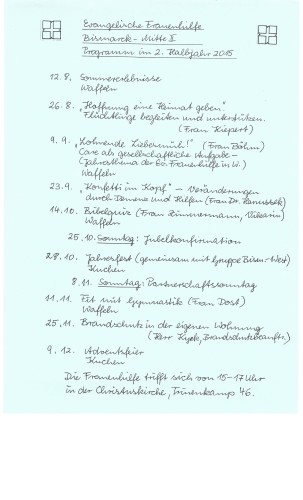 Evangelische Frauenhilfe
Bismarck - Mitte II
Programm im 2. Halbjahr 2015
12.8. Sommererlebnisse
Waffeln
26.8. „Hoffnung eine Heimat geben"
Flüchtlinge begleiten und unterstützen.
(Frau Kiepert)
9.9. „Lohnende Liebesmüh!" (Frau Böhm)
Care als gesellschaftliche Aufgabe-
(Jahresthema der Ev. Frauenhilfe in W.)
Waffeln
23.9. „Konfetti im Kopf" - Veränderungen
durch Demenz und Hilfen (Frau Dr.
14.10. Bibelquiz (Frau Zimmermann, Vikarin)
Waffeln
25.10. Sonntag: Jubelkonfirmation
28.10. Jahresfest (gemeinsam mit Gruppe Bism.-West)
Kuchen
8.11. Sonntag: Partnerschaftssonntag
11.11. Fit mit Gymnastik (Frau Dost)
Waffeln
25.11. Brandschutz in der eigenen Wohnung
(Herr Brandschutzbeauftr.)
9.12. Adventsfeier
Kuchen
Die Frauenhilfe trifft sich von 15-17 Uhr
in der Christuskirche, Trinenkamp 46.